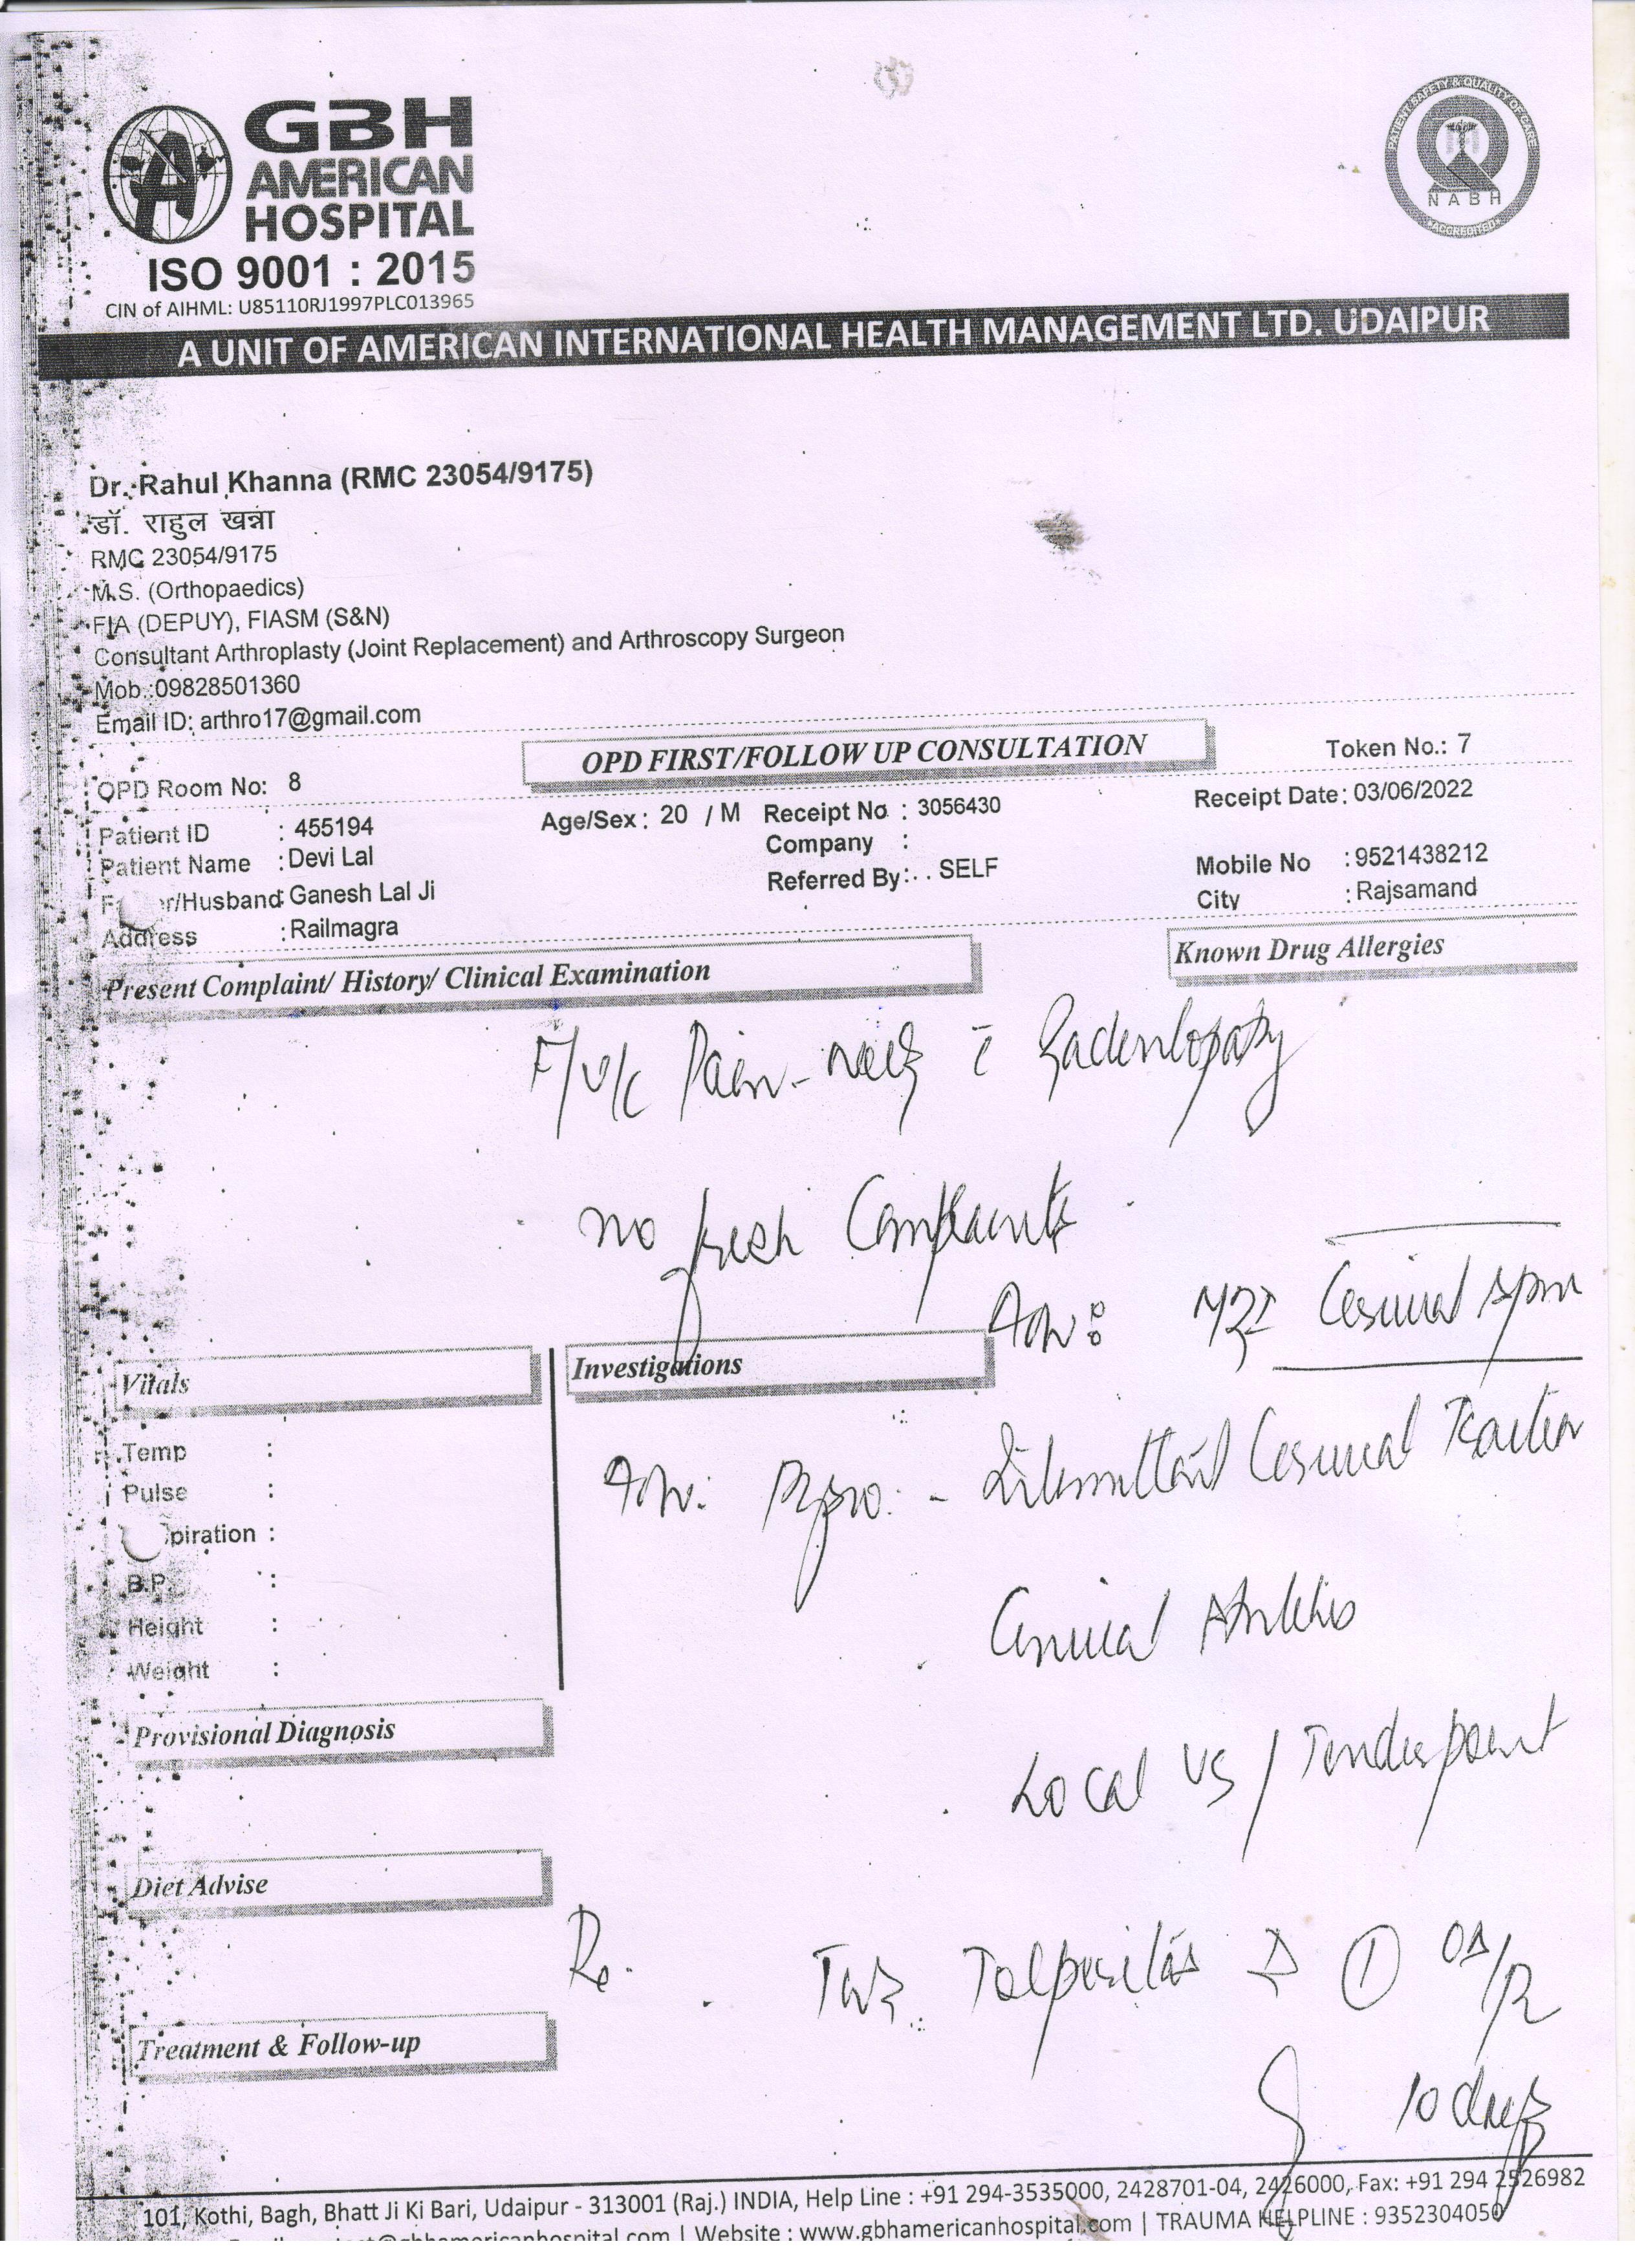 GBH
AMERICAN
HOSPITAL
ISO 9001 : 2015
CIN of AIHML: U85110RJ1997PLC013965
PATIENT SAFETY & QUALITY OF CARE
NABH
ACCREDITED
A UNIT OF AMERICAN INTERNATIONAL HEALTH MANAGEMENT LTD. UDAIPUR
Dr. Rahul Khanna (RMC 23054/9175)
डॉ. राहुल खन्ना
RMC 23054/9175
M.S. (Orthopaedics)
FIA (DEPUY), FIASM (S&N)
Consultant Arthroplasty (Joint Replacement) and Arthroscopy Surgeon
Mob.:09828501360
Email ID: arthro17@gmail.com
OPD FIRST/FOLLOW UP CONSULTATION
Token No.: 7
OPD Room No: 8
Patient ID : 455194 Age/Sex : 20 / M Receipt No : 3056430 Receipt Date : 03/06/2022
Patient Name : Devi Lal Company : Mobile No : 9521438212
/Husband: Ganesh Lal Ji Referred By : . . SELF City : Rajsamand
Address : Railmagra
Present Complaint/ History/ Clinical Examination
Known Drug Allergies
F/U/C Pain - neck c̄
no fresh Complaints
Adv: MRI Cervical spine
Vitals
Investigations
Temp :
Pulse :
piration :
B.P. :
Height :
Weight :
Adv: - Intermittent Cervical Traction
Cervical
Local US / Tenderpoint
Provisional Diagnosis
Diet Advise
Rx. Tab. 1 OD
10 days
Treatment & Follow-up
101, Kothi, Bagh, Bhatt Ji Ki Bari, Udaipur - 313001 (Raj.) INDIA, Help Line : +91 294-3535000, 2428701-04, 2426000, Fax: +91 294 2526982
gbhamericanhospital.com | Website : www.gbhamericanhospital.com | TRAUMA HELPLINE : 9352304050